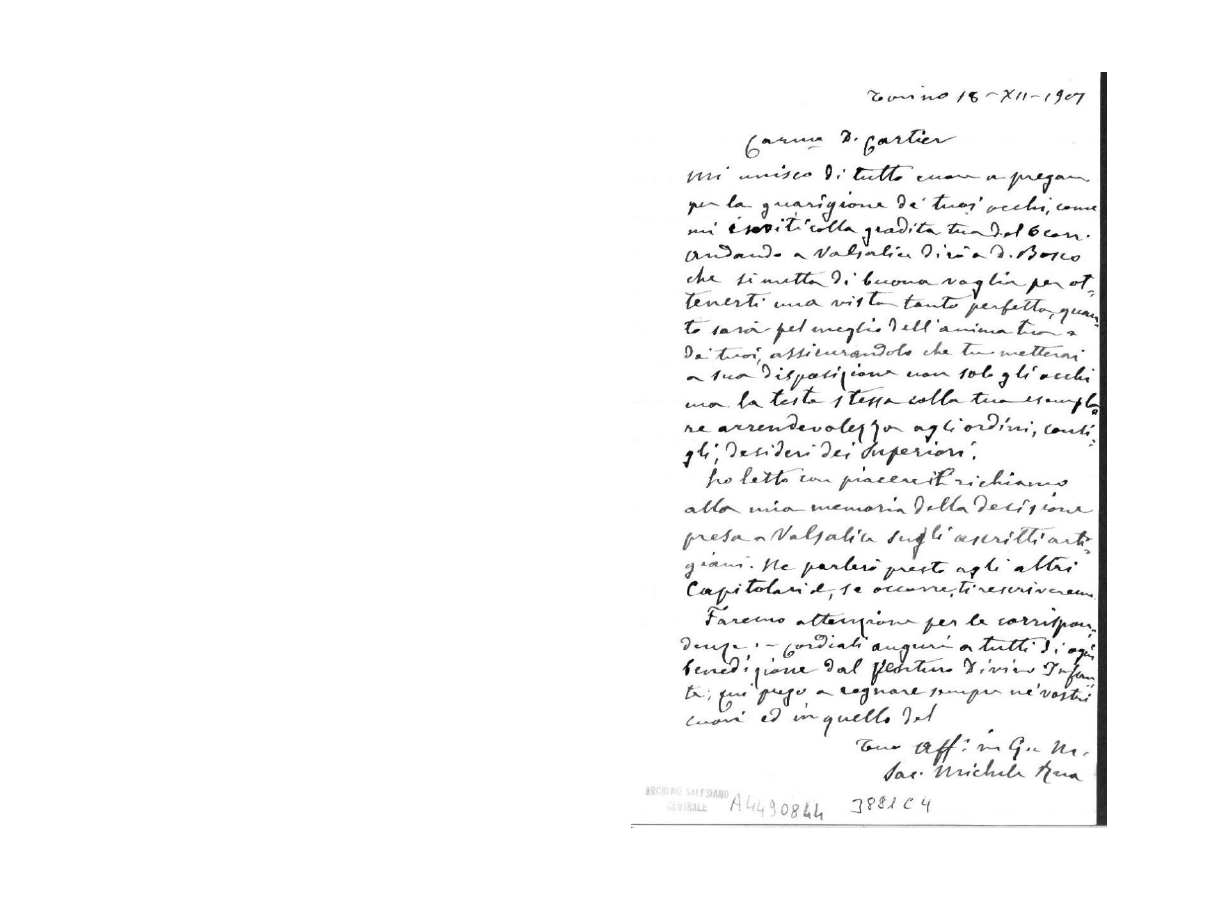 Torino 18-XII-1907
Carmo D. Cartier
Mi unisco di tutto cuore a pregare
per la guarigione de' tuoi occhi, come
mi colla gradita tua del 6 corr.
Andando a Valsalice dirò a D. Bosco
che si metta di buona voglia per ot-
tenerti una vista tanto perfetta, quan-
to sarà pel meglio dell'anima tua e
de' tuoi, assicurandolo che tu metterai
a sua disposizione non solo gli occhi
ma la testa stessa colla tua esempla-
re arrendevolezza agli ordini, consi-
gli, desideri dei Superiori.
Ho letto con piacere il richiamo
alla mia memoria della decisione
presa a Valsalice sugli ascritti arti-
giani. Ne parlerò presto agli altri
Capitolari e, se occorre, ti riscriveremo.
Faremo attenzione per le corrispon-
denze. - Cordiali auguri a tutti di ogni
benedizione dal venturo Divino Infan-
te; cui prego a regnare sempre ne' vostri
cuori ed in quello del
Tuo aff. in G. e M.
Sac. Michele Rua
ARCHIVIO SALESIANO
CENTRALE A4490844 3881C4